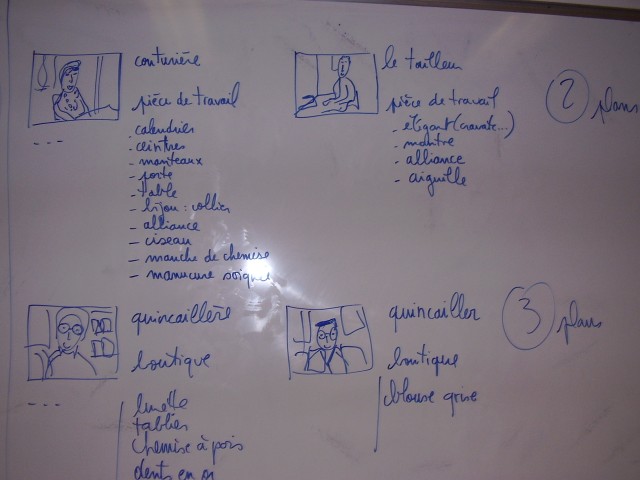 couturière
pièce de travail
- calendrier
- ceintres
- manteaux
- porte
- table
- bijou : collier
- alliance
- ciseau
- manche de chemise
- manucure soignée
- - -
le tailleur
pièce de travail
- élégant (cravate...)
- montre
- alliance
- aiguille
2 plans
quincaillère
boutique
- - -
lunette
tablier
chemise à pois
dents en or
quincailler
boutique
blouse grise
3 plans